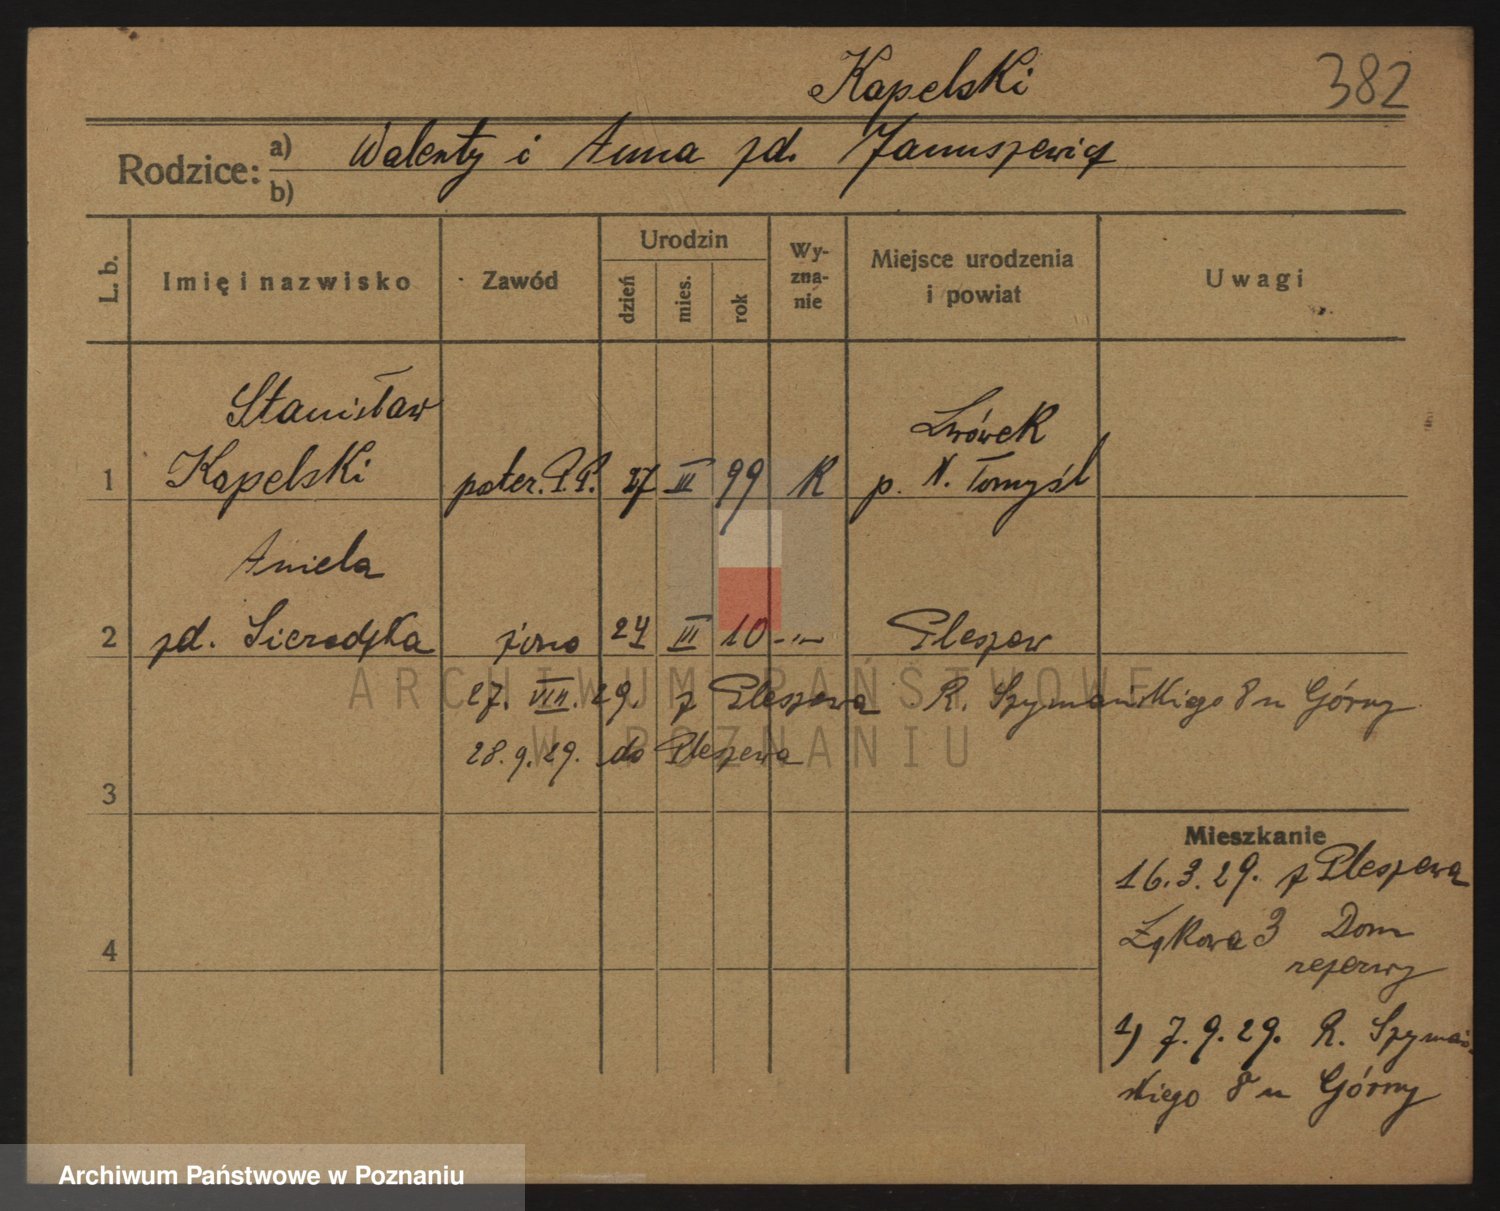 Kapelski 382
Rodzice: a) Walenty i Anna zd. Januszewicz
b)
L. b. Imię i nazwisko Zawód Urodzin dzień mies. rok Wy-zna-nie Miejsce urodzenia i powiat Uwagi
Stanisław Lwówek
1 Kapelski poster. P.P. 27 III 99 R p. N. Tomyśl
Aniela
2 zd. Sieradzka żona 24 III 10 -"- Pleszew
27. VIII. 29. z Pleszewa R. Szymańskiego 8 u Górny
28. 9. 29. do Pleszewa
3
Mieszkanie
16. 3. 29. z Pleszewa
Łąkowa 3 Dom
rezerwy
4
1) 7. 9. 29. R. Szymań-
skiego 8 u Górny
ARCHIWUM PAŃSTWOWE
W POZNANIU
Archiwum Państwowe w Poznaniu